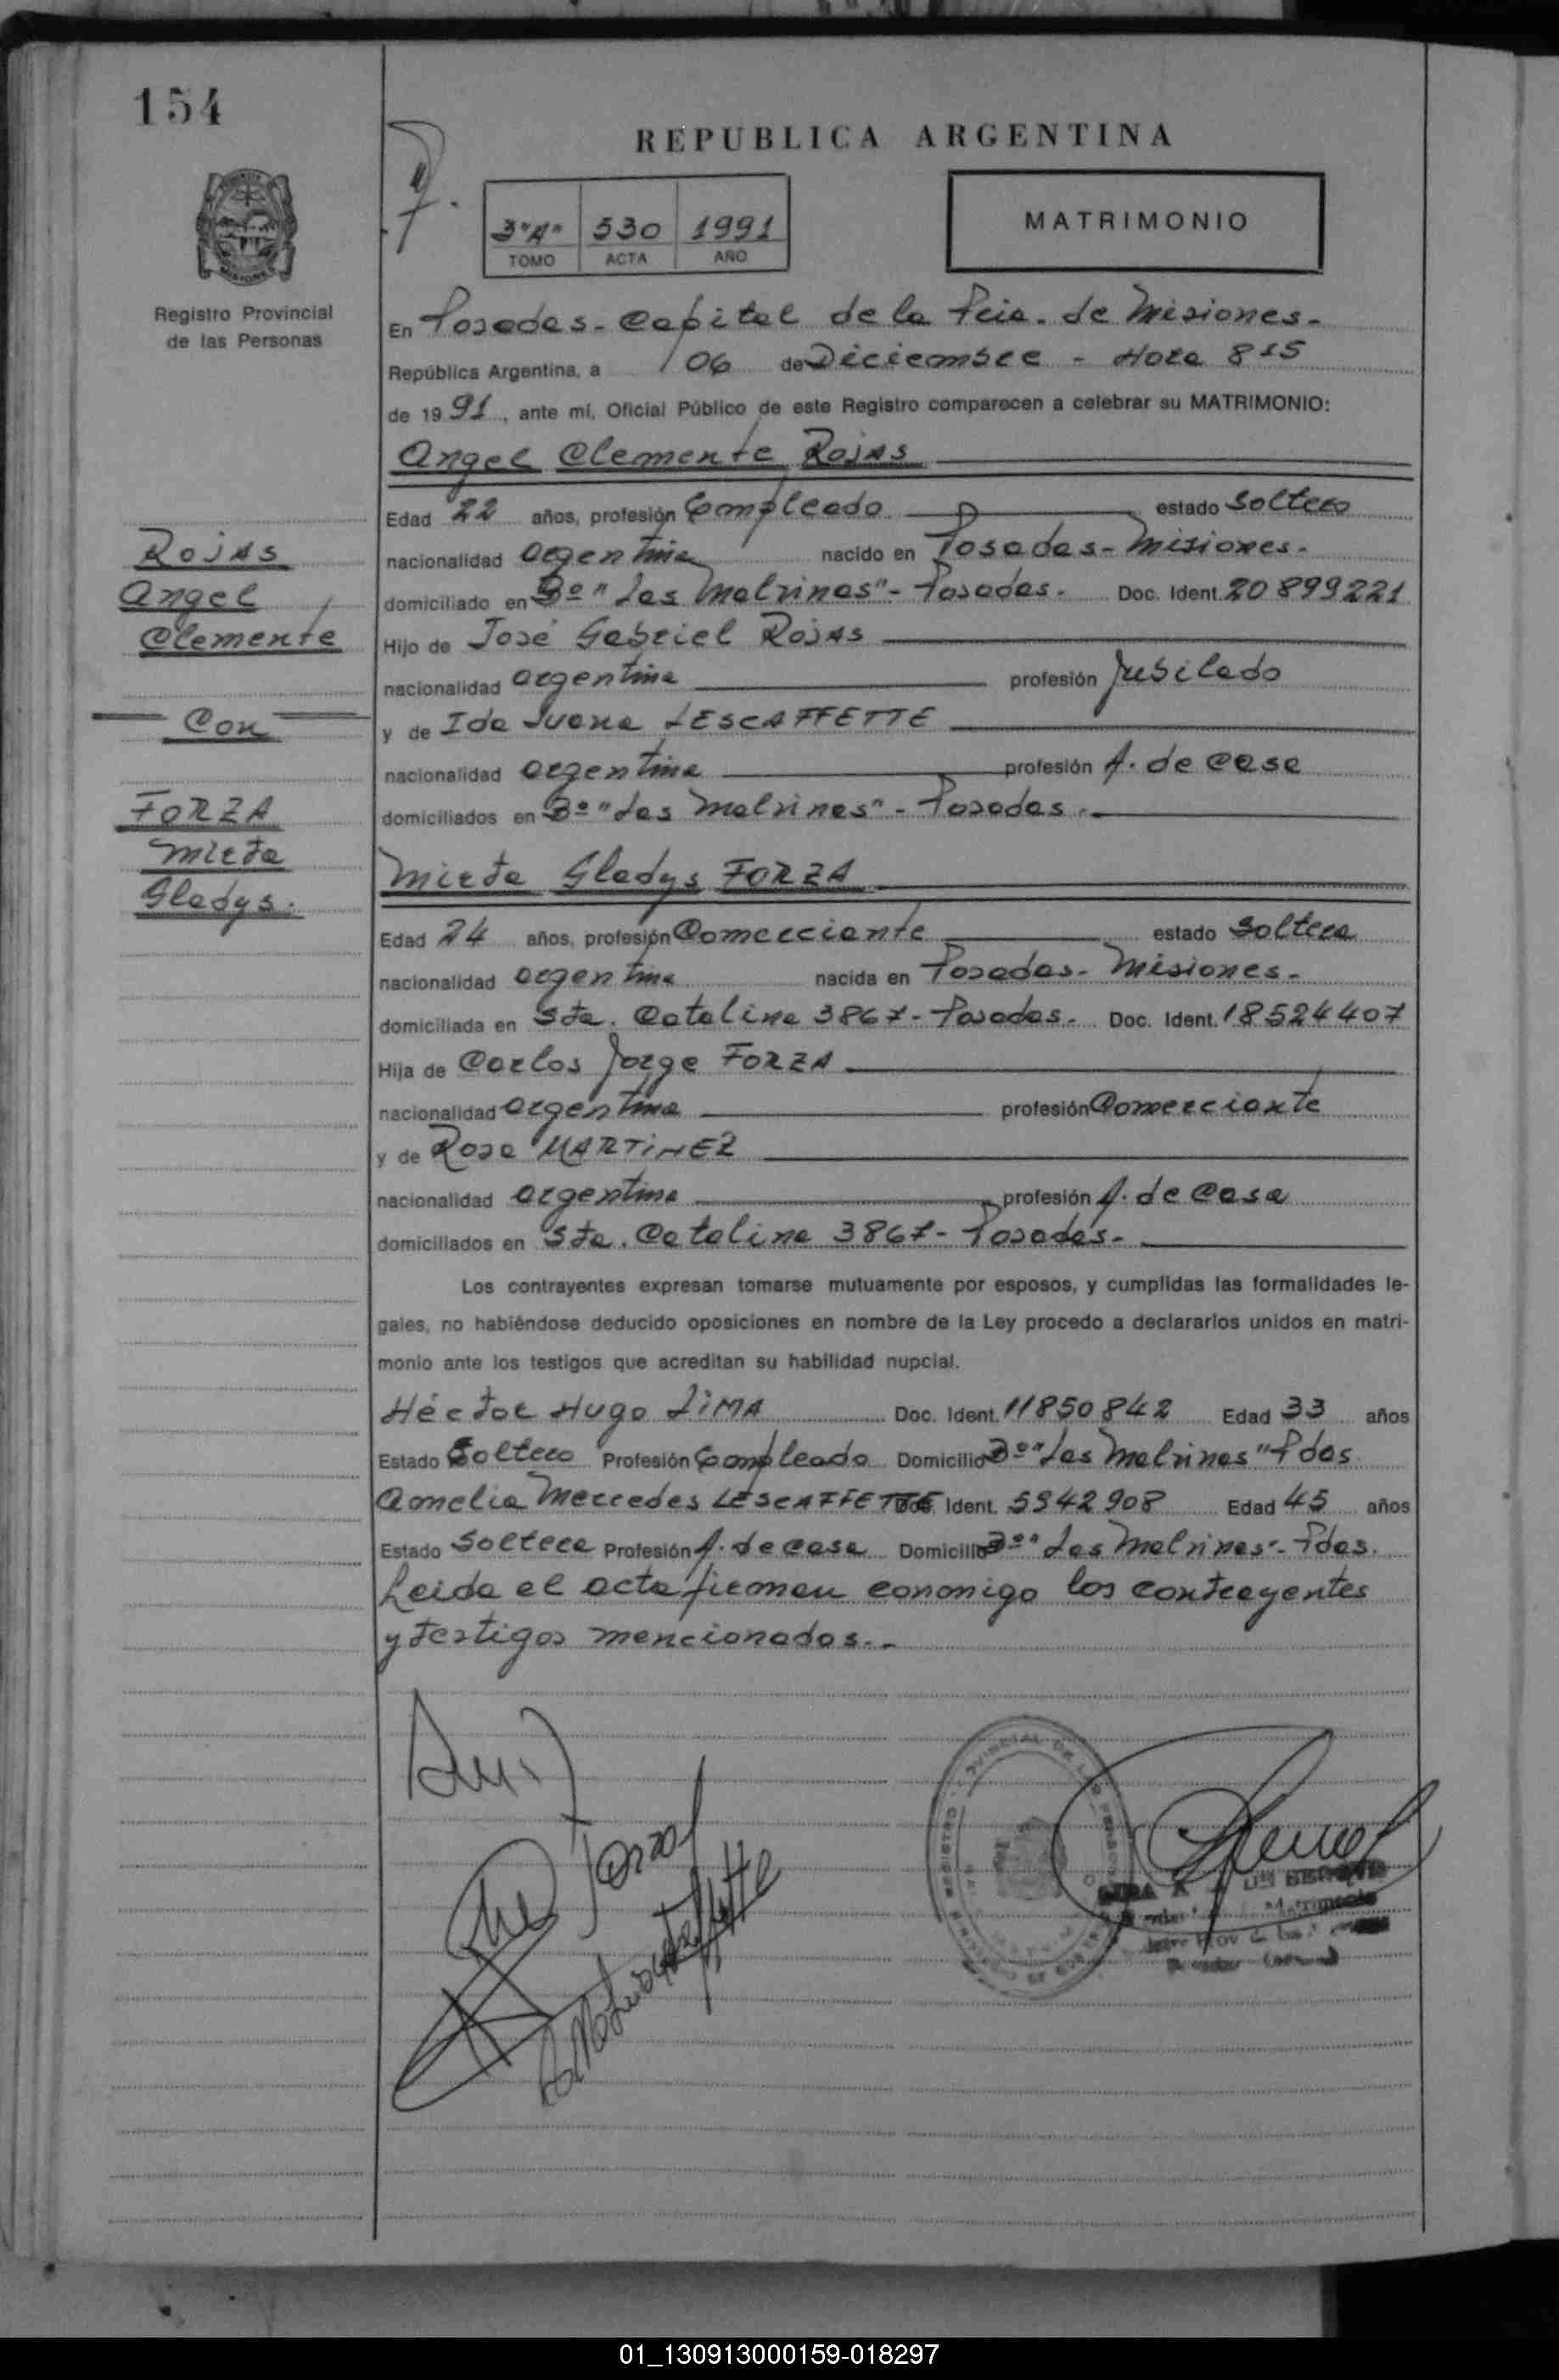 154
REPUBLICA ARGENTINA
3"A" 530 1991
TOMO ACTA AÑO
MATRIMONIO
Registro Provincial
de las Personas
En Posadas - Capital de la Pcia. de Misiones.
República Argentina, a 06 de Diciembre - Hora 8 15
de 19 91, ante mí, Oficial Público de este Registro comparecen a celebrar su MATRIMONIO:
Angel Clemente Rojas
Edad 22 años, profesión Empleado estado Soltero
nacionalidad argentina nacido en Posadas - Misiones.
domiciliado en Bº "Las Malvinas" - Posadas. Doc. Ident. 20899221
Hijo de José Gabriel Rojas
nacionalidad argentina profesión Jubilado
y de Ida Juana LESCAFFETTE
nacionalidad argentina profesión A. de Casa
domiciliados en Bº "Las Malvinas" - Posadas.
Rojas
Angel
Clemente
Con
FORZA
Mirta
Gladys.
Mirta Gladys FORZA
Edad 24 años, profesión Comerciante estado Soltera
nacionalidad argentina nacida en Posadas - Misiones.
domiciliada en Sta. Catalina 3867 - Posadas. Doc. Ident. 18524407
Hija de Carlos Jorge FORZA
nacionalidad argentina profesión Comerciante
y de Rosa MARTINEZ
nacionalidad argentina profesión A. de Casa
domiciliados en Sta. Catalina 3867 - Posadas.
Los contrayentes expresan tomarse mutuamente por esposos, y cumplidas las formalidades le-
gales, no habiéndose deducido oposiciones en nombre de la Ley procedo a declararlos unidos en matri-
monio ante los testigos que acreditan su habilidad nupcial.
Héctor Hugo LIMA Doc. Ident. 11850842 Edad 33 años
Estado Soltero Profesión Empleado Domicilio Bº "Las Malvinas" Pdas.
Amelia Mercedes LESCAFFETTE Doc. Ident. 5942908 Edad 45 años
Estado Soltera Profesión A. de casa Domicilio Bº "Las Malvinas" - Pdas.
Leida el acta firman conmigo los contrayentes
y testigos mencionados.
Forza
01_130913000159-018297